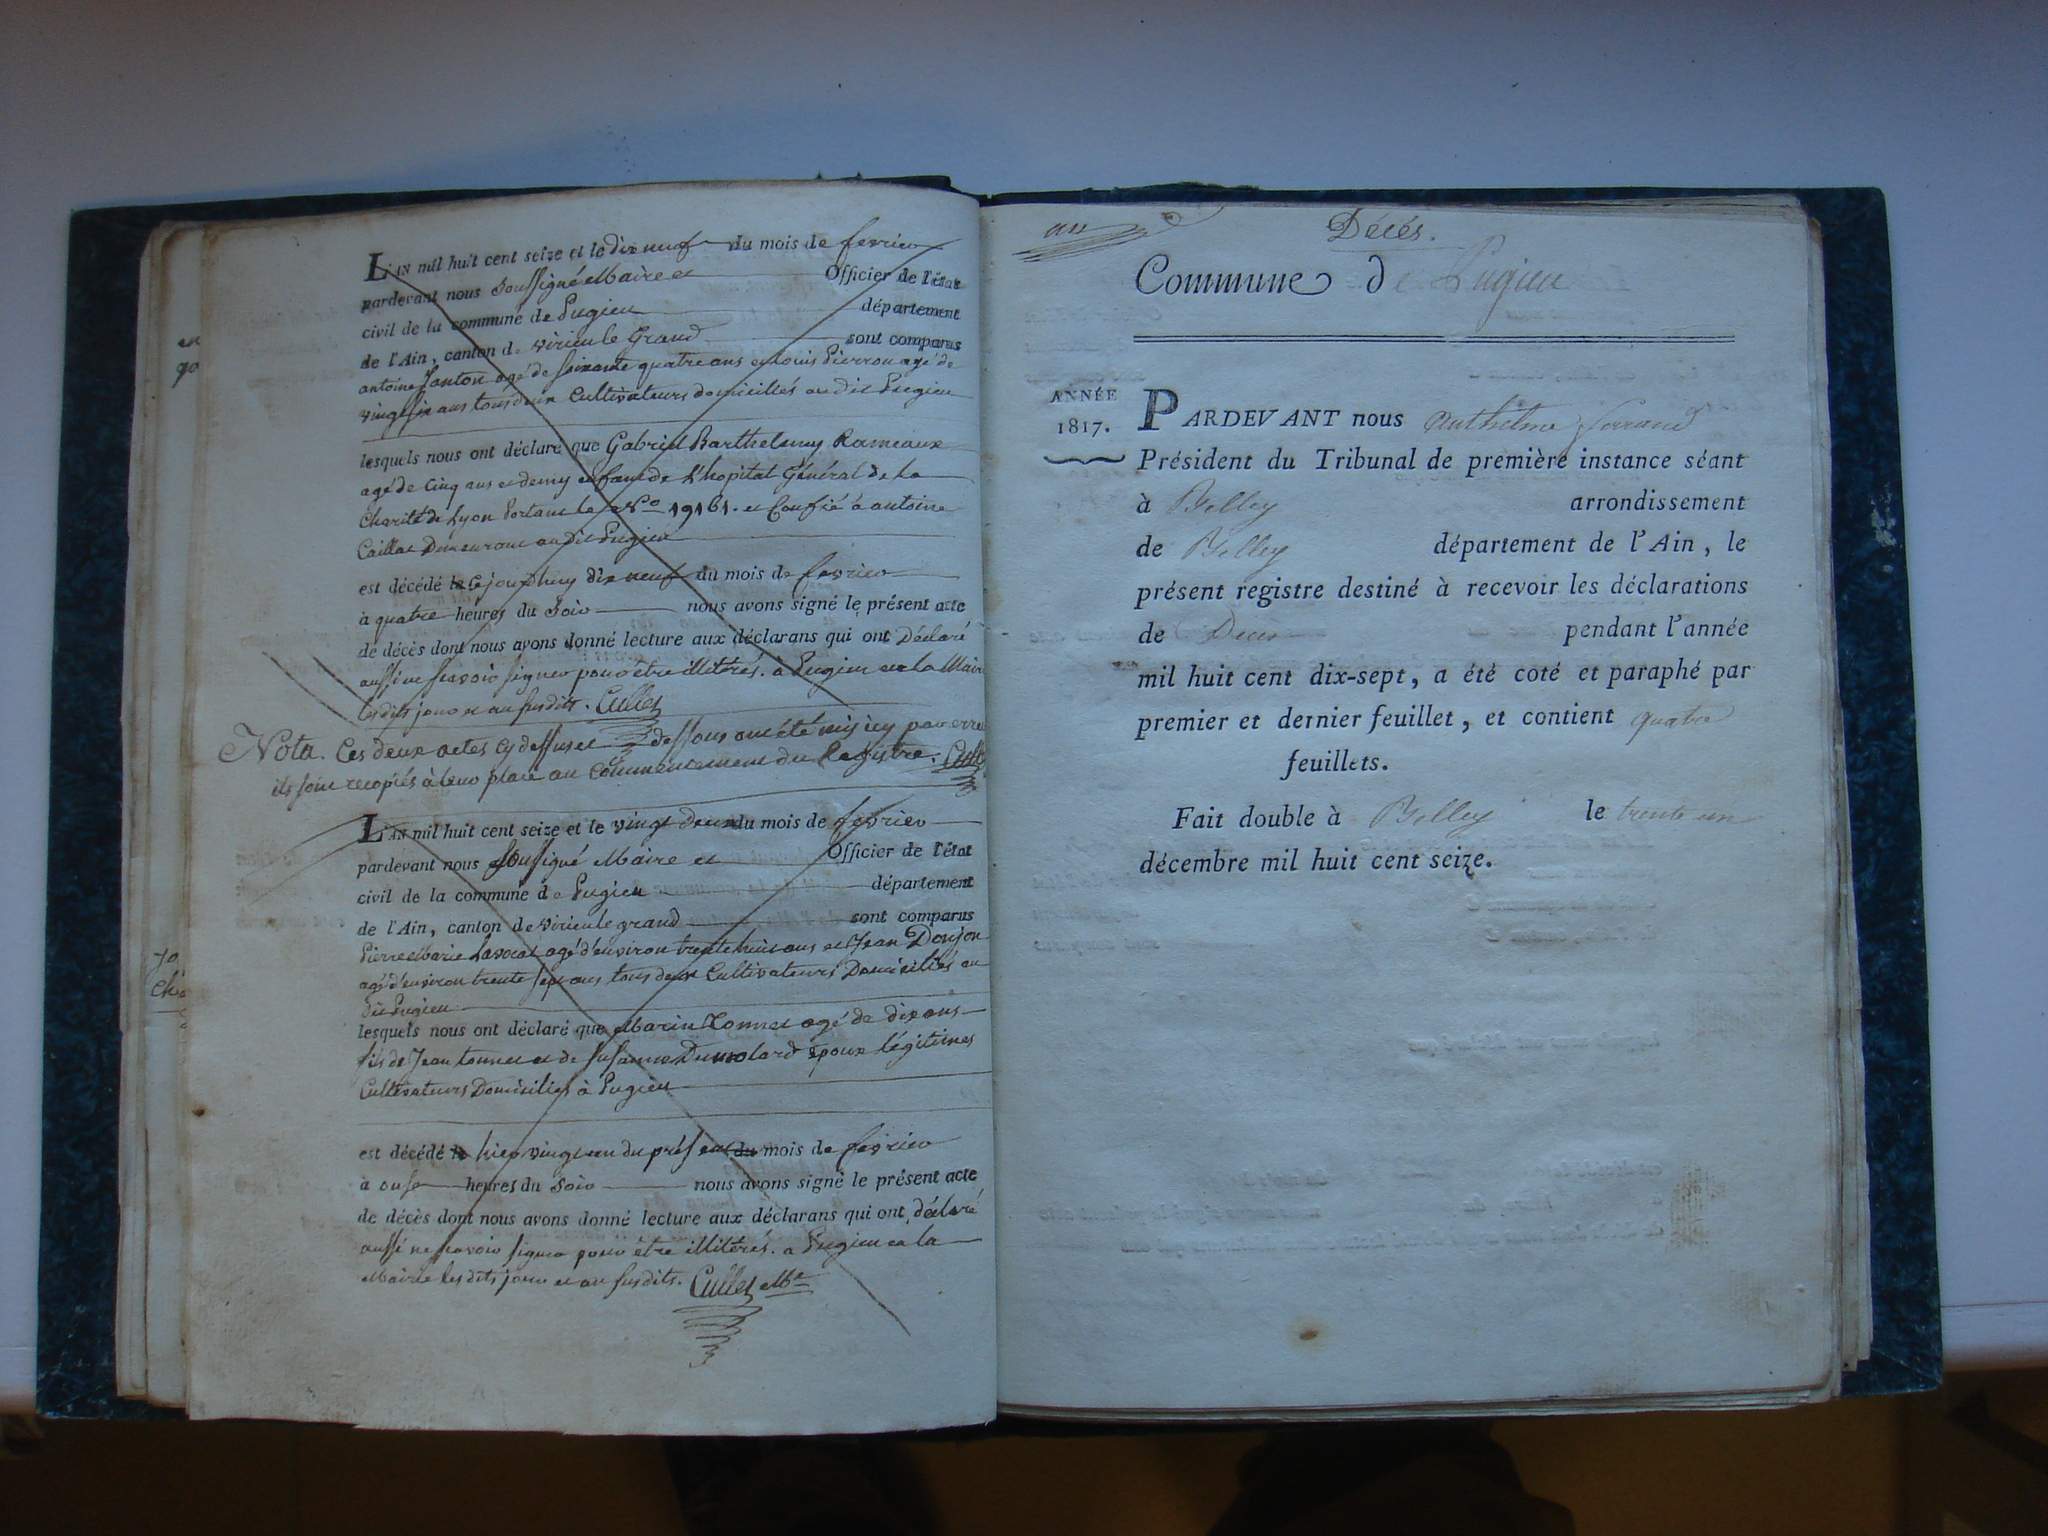 L'AN mil huit cent seize et le dix neuf du mois de fevrier
pardevant nous soussigné Maire et Officier de l'état
civil de la commune de Pugieu département
de l'Ain, canton de virieu le Grand sont comparus
antoine Janton agé de soixante quatre ans et Louis Pierron agé de
vingt six ans tous deux Cultivateurs domicilliés au dit Pugieu
lesquels nous ont déclaré que Gabriel Barthelemy Rameaux
agé de Cinq ans et demy enfant de L'hopital Général de La
Charité de Lyon Portant le No 19161. et Confié à antoine
Caillat Demeurant au Dit Pugieu
est décédé le Cejourdhuy dix neuf du mois de fevrier
à quatre heures du Soir nous avons signé le présent acte
de décès dont nous avons donné lecture aux déclarans qui ont Déclaré
aussi ne scavoir signer pour être illitérés. à Pugieu en la Mairie
les dits jour et an susdits. Cullet
Nota. Ces deux actes cy dessus et dessous ont été mis icy par erre
ils sont recopiés à leur place au Commencement du Registre. Cullet
L'AN mil huit cent seize et le vingt deux du mois de fevrier
pardevant nous soussigné Maire et Officier de l'état
civil de la commune de Pugieu département
de l'Ain, canton de virieu le grand sont comparus
Pierre Marie Lavocat agé d'environ trente huit ans et Jean Donjon
agé d'environ trente sept ans tous deux Cultivateurs Domiciliés au
dit Pugieu
lesquels nous ont déclaré que Marin Tonnet agé de dix ans
fils de Jean tonnet et de Susanne Dumolard Epoux légitimes
Cultivateurs Domiciliés à Pugieu
est décédé le hier vingt un du présent du mois de fevrier
à onse heures du Soir nous avons signé le présent acte
de décès dont nous avons donné lecture aux déclarans qui ont déclaré
aussi ne scavoir signer pour être illitérés. a Pugieu en la
Mairie les dits jour et an susdits. Cullet Me
Décés.
Commune de Pugieu
ANNÉE
1817.
PARDEVANT nous Anthelme Ferrand
Président du Tribunal de première instance séant
à Belley arrondissement
de Belley département de l'Ain, le
présent registre destiné à recevoir les déclarations
de Déces pendant l'année
mil huit cent dix-sept, a été coté et paraphé par
premier et dernier feuillet, et contient quatre
feuillets.
Fait double à Belley le trente un
décembre mil huit cent seize.